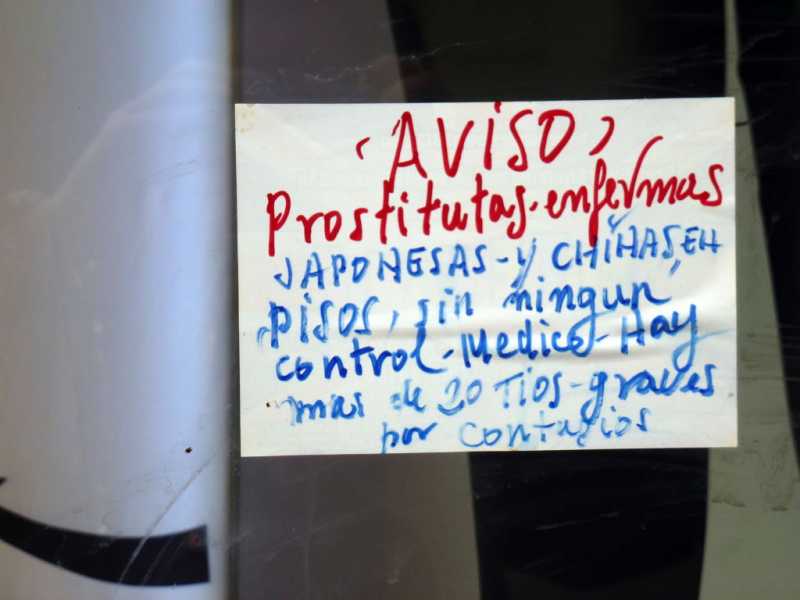 ‹AVISO›
Prostitutas-enfermas
JAPONESAS-y CHINAS, EN
PISOS, sin ningun
control-Medico-Hay
mas de 20 Tios-graves
por contagios